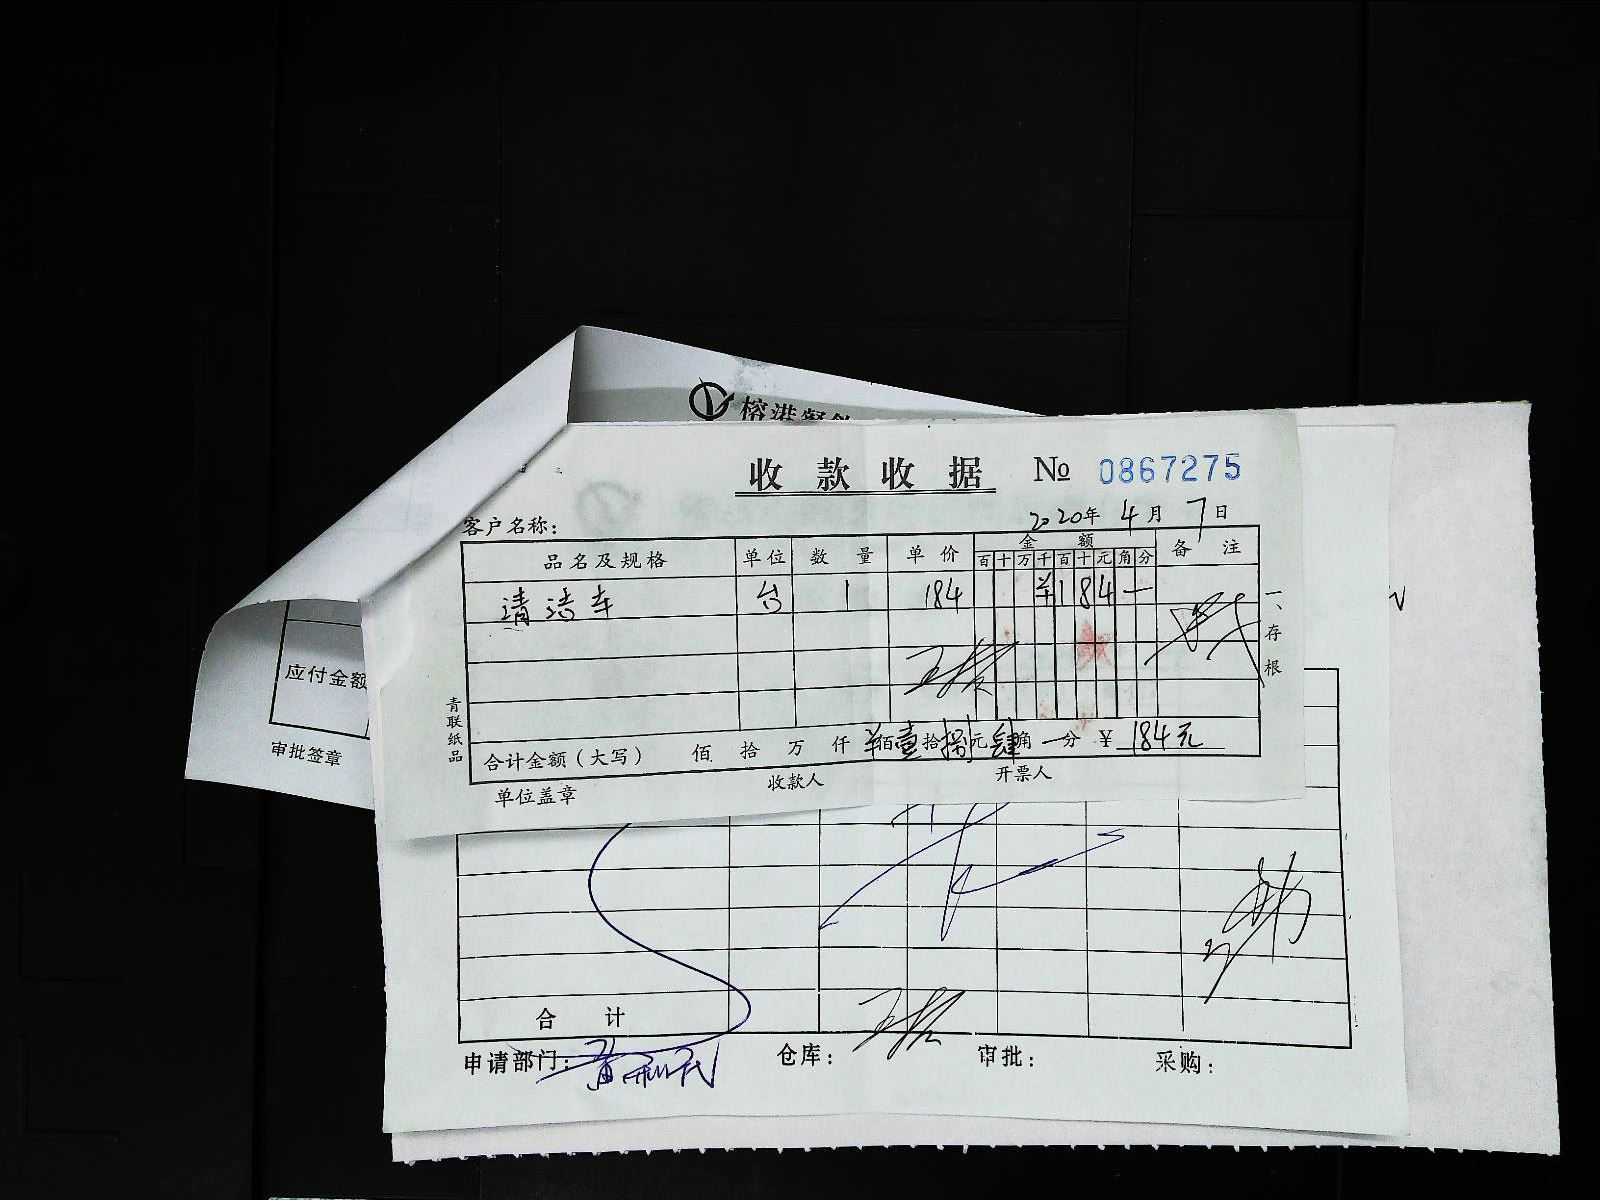 榕港餐饮
收款收据 № 0867275
客户名称: 2020年 4月 7日
品名及规格 单位 数量 单价 金额 备注
百 十 万 千 百 十 元 角 分
清洁车 台 1 184 ¥ 1 8 4 一
一、存根
青联纸品
合计金额(大写) 佰 拾 万 仟 ¥佰壹拾捌元肆角一分 ¥ 184元
单位盖章 收款人 开票人
应付金额
审批签章
合计
申请部门: 仓库: 审批: 采购: